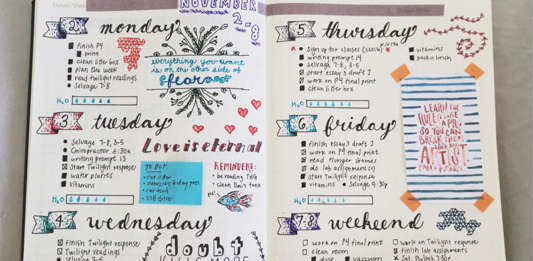 NOVEMBER
2-8
2
monday
finish P4
print
clean litter box
plan the week
read Twilight readings
Selvage 7-8
everything you want
is on the other side of
fear
H₂O
3
tuesday
Selvage 7-8, 8-5
Chiropractor 6:30a
writing prompt 13
start Twilight response
water plants
vitamins
H₂O
Love is eternal
TO BUY:
REMINDERS:
be reading TGB
clean tank
4
wednesday
finish Twilight response
Twilight readings
doubt
KILLS MORE
5
thursday
sign up for classes
writing prompt 14
selvage 7-8, 8-5
start essay 3 draft 1
work on P4 final print
clean litter box
vitamins
H₂O
6
friday
finish essay 3 draft 1
work on P4 final print
read Hunger Games
do lab assignment
start Twilight response
vitamins
Selvage 9-30p
H₂O
LEARN THE
RULES LIKE
A PRO
SO YOU CAN
BREAK THEM
LIKE AN
ARTIST.
7-8
weekend
work on P4 final print
clean room
vacuum
work on Twilight response
finish lab assignments